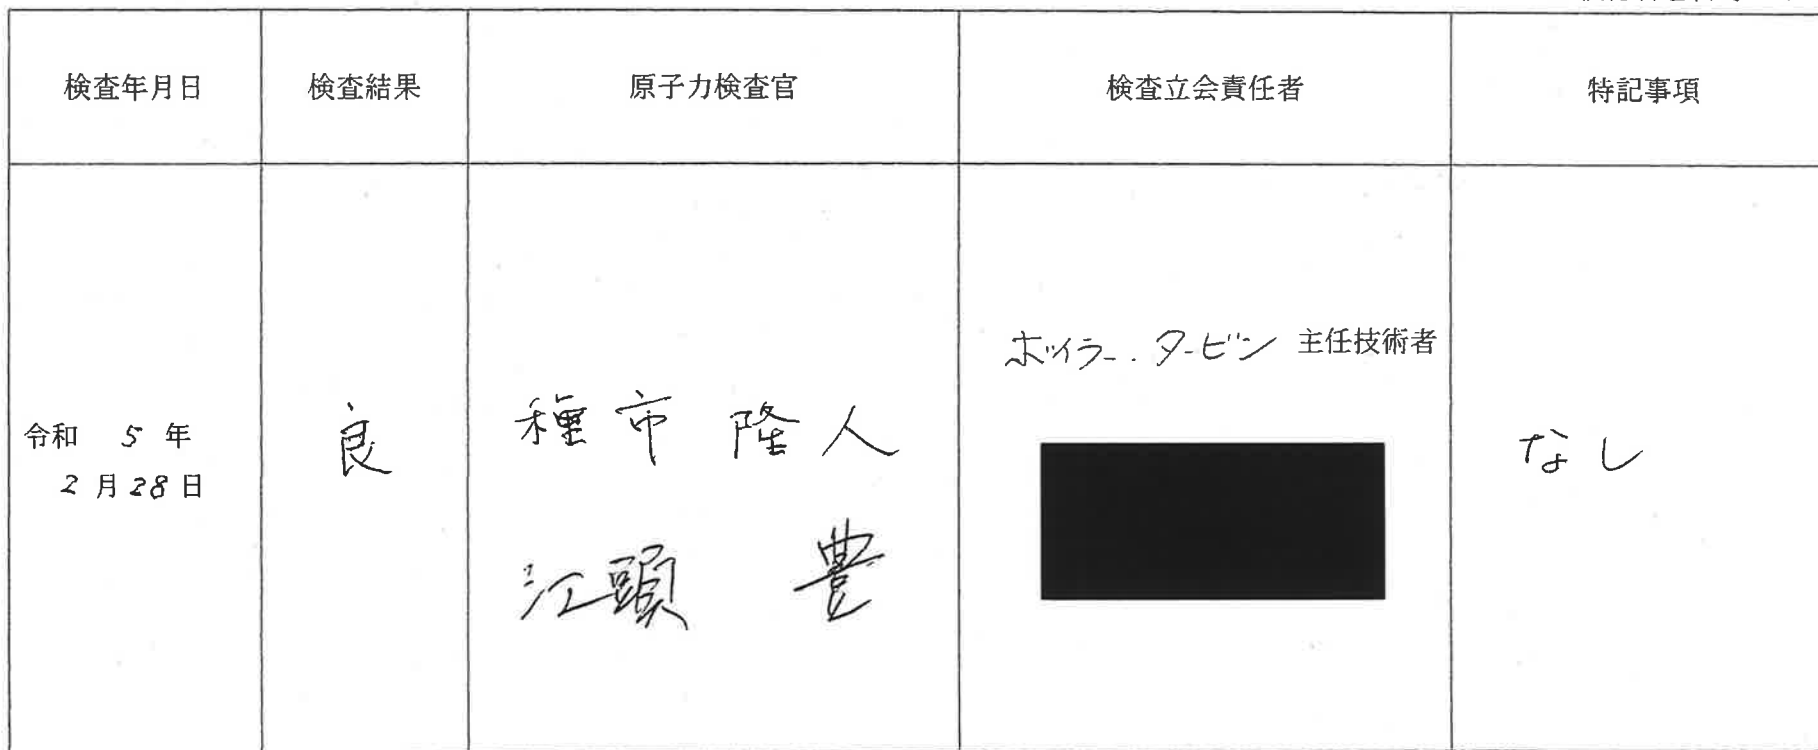 検査年月日
検査結果
原子力検査官
検査立会責任者
特記事項
令和 5 年
2 月 28 日
良
種市 隆人
江頭 豊
ボイラー・タービン 主任技術者
なし